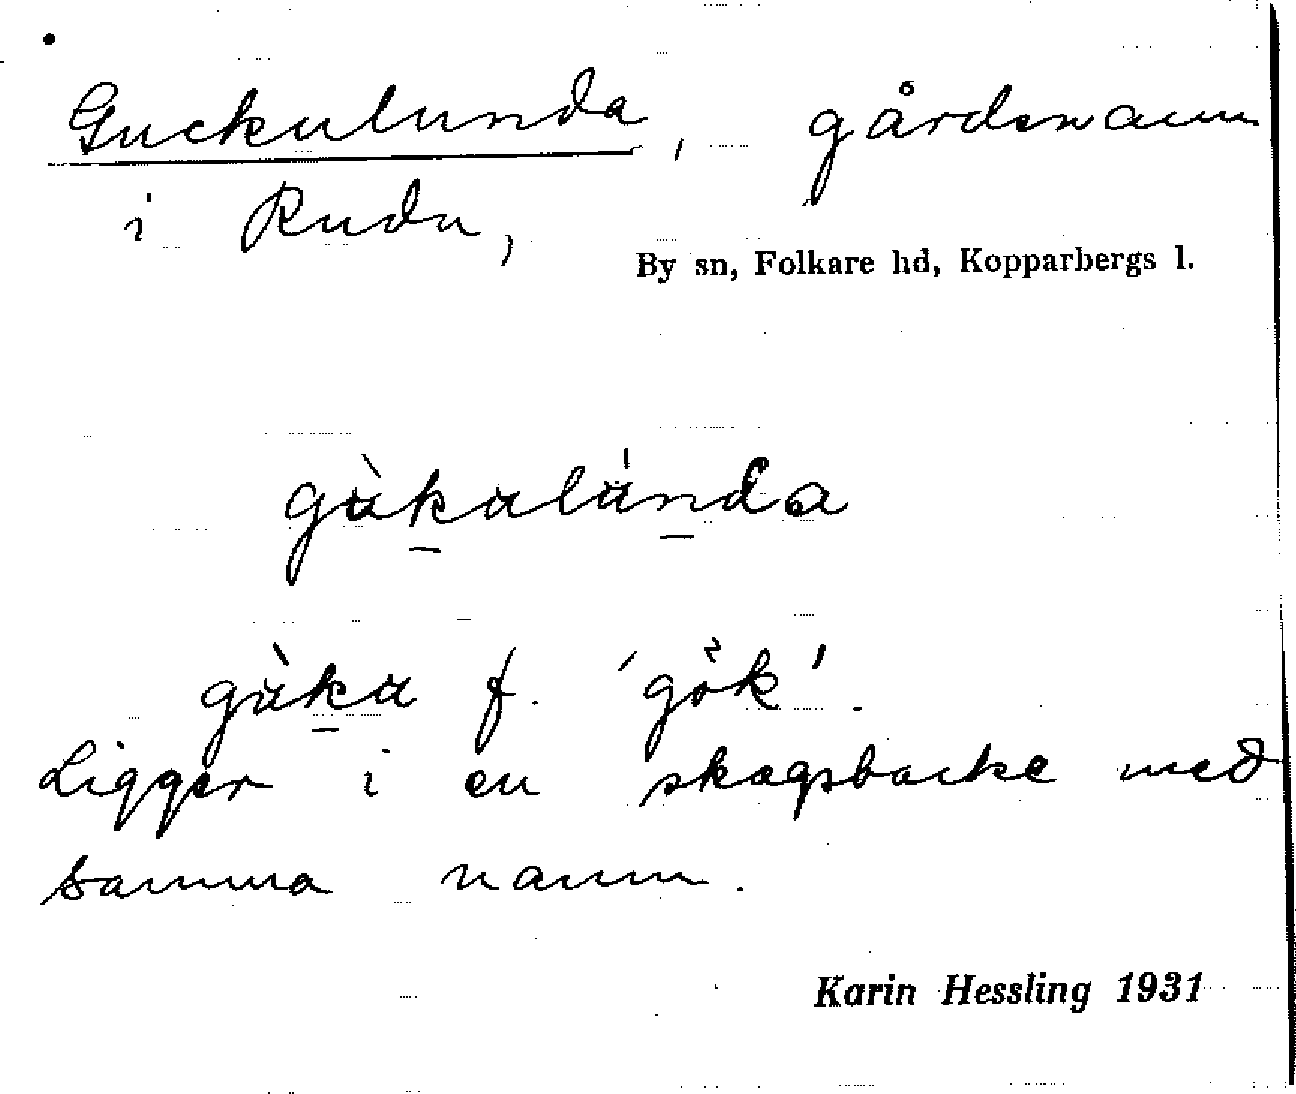 Guckulunda, gårdsnamn
i Ruda,
By sn, Folkare hd, Kopparbergs l.
gùkulúnda
gùku f. 'gök'.
Ligger i en skogsbacke med
samma namn.
Karin Hessling 1931